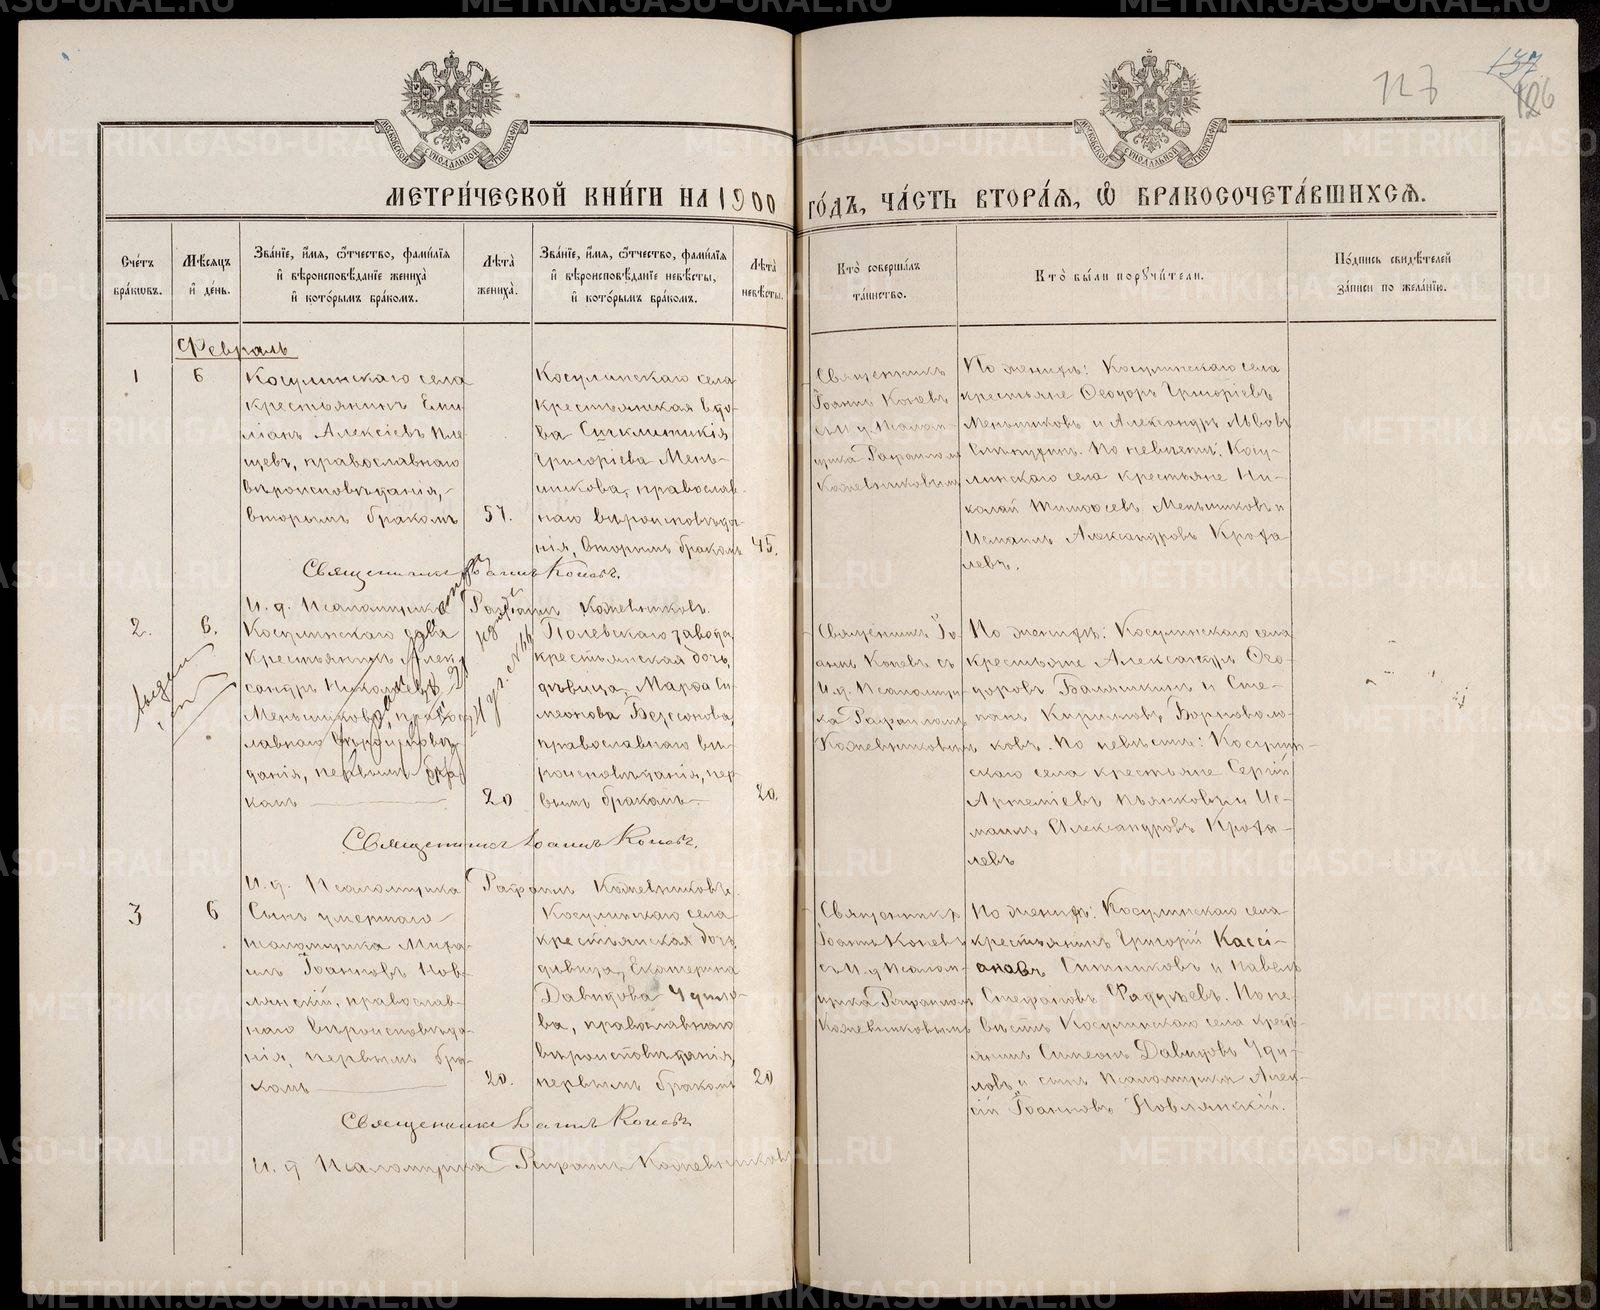 127
137
126
МЕТРИ́ЧЕСКОЙ КНИ́ГИ НА 1900 ГО́ДЪ, ЧА́СТЬ ВТОРА́Я, Ѡ҆ БРАКОСОЧЕТА́ВШИХСЯ.
Сче́тъ бра́кѡвъ.
Мѣ́сяцъ и҆ де́нь.
Зва́нїе, и҆́мя, ѻ҆́тчество, фами́лїя и҆ вѣроисповѣ́данїе жениха̀ и҆ кото́рымъ бра́комъ.
Лѣ́та жениха̀.
Зва́нїе, и҆́мя, ѻ҆́тчество, фами́лїя и҆ вѣроисповѣ́данїе невѣ́сты, и҆ кото́рымъ бра́комъ.
Лѣ́та невѣ́сты.
Кто̀ соверша́лъ та́инство.
Кто̀ бы́ли порꙋчи́тели.
По́дпись свидѣ́телей за́писи по жела́нїю.
Февраль
1
6
Косулинскаго села
крестьянинъ Еми-
ліанъ Алексіевъ Пле-
щевъ, православнаго
вѣроисповѣданія,
вторымъ бракомъ
57.
Косулинскаго села
крестьянская вдо-
ва Синклитикія
Григоріева Мень-
шикова, православ-
наго вѣроисповѣда-
нія, вторымъ бракомъ
45.
Священникъ
Іоаннъ Коневъ
съ И. д. Псалом-
щика Рафаиломъ
Кожевниковымъ
По женихѣ: Косулинскаго села
крестьяне Ѳеодоръ Григоріевъ
Меньшиковъ и Александръ Львовъ
По невѣстѣ: Косу-
линскаго села крестьяне Ни-
колай Тимоѳеевъ Меньшиковъ и
Исмаилъ Александровъ Крота-
левъ.
Священникъ Іоаннъ Коневъ.
И. д. Псаломщика Рафаилъ Кожевниковъ.
2.
6.
Косулинскаго села
крестьянинъ Алек-
сандръ Николаевъ
Меньшиковъ, правос-
лавнаго вѣроисповѣ-
данія, первымъ бра-
комъ
20
Полевскаго завода
крестьянская дочь,
дѣвица, Марѳа Си-
меонова Берсенова,
православнаго вѣ-
роисповѣданія, пер-
вымъ бракомъ
20.
Священникъ Іо-
аннъ Коневъ съ
И. д. Псаломщи-
ка Рафаиломъ
Кожевниковымъ
По женихѣ: Косулинскаго села
крестьяне Александръ Ѳео-
доровъ Балашкинъ и Сте-
панъ Кирилловъ Борноволо-
ковъ. По невѣстѣ: Косулин-
скаго села крестьяне Сергій
Артеміевъ Пьянковъ и Ис-
маилъ Александровъ Крота-
левъ
Священникъ Іоаннъ Коневъ.
И. д. Псаломщика Рафаилъ Кожевниковъ.
3
6
Сынъ умершаго
псаломщика Миха-
илъ Іоанновъ Нов-
лянскій, православ-
наго вѣроисповѣда-
нія, первымъ бра-
комъ
20.
Косулинскаго села
крестьянская дочь,
дѣвица, Екатерина
Давидова Удило-
ва, православнаго
вѣроисповѣданія,
первымъ бракомъ
20
Священникъ
Іоаннъ Коневъ
съ И. д. Псалом-
щика Рафаиломъ
Кожевниковымъ
По женихѣ: Косулинскаго села
крестьянинъ Григорій Кассі-
ановъ Ситниковъ и Павелъ
Стефановъ Фаддѣевъ. По не-
вѣстѣ Косулинскаго села крест-
янинъ Симеонъ Давидовъ Уди-
ловъ и сынъ Псаломщика Алек-
сій Іоанновъ Новлянскій.
Священникъ Іоаннъ Коневъ
И. д. Псаломщика Рафаилъ Кожевниковъ